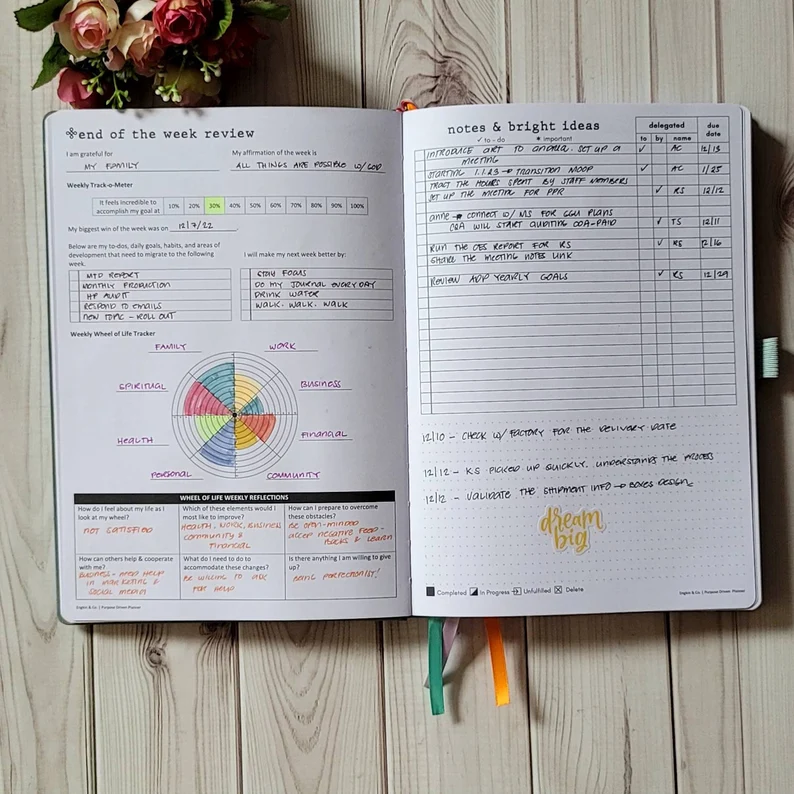 end of the week review
I am grateful for
MY FAMILY
My affirmation of the week is
ALL THINGS ARE POSSIBLE W/ GOD
Weekly Track-o-Meter
It feels incredible to
accomplish my goal at
10% 20% 30% 40% 50% 60% 70% 80% 90% 100%
My biggest win of the week was on 12/7/22
Below are my to-dos, daily goals, habits, and areas of
development that need to migrate to the following
week.
MTD REPORT
MONTHLY PRODUCTION
HF AUDIT
RESPOND TO EMAILS
NEW TOPIC - ROLL OUT
I will make my next week better by:
STAY FOCUS
DO MY JOURNAL EVERYDAY
DRINK WATER
WALK. WALK. WALK
Weekly Wheel of Life Tracker
FAMILY
WORK
SPIRITUAL
BUSINESS
HEALTH
FINANCIAL
PERSONAL
COMMUNITY
WHEEL OF LIFE WEEKLY REFLECTIONS
How do I feel about my life as I
look at my wheel?
NOT SATISFIED
Which of these elements would I
most like to improve?
HEALTH, WORK, BUSINESS
COMMUNITY &
FINANCIAL
How can I prepare to overcome
these obstacles?
BE OPEN-MINDED
ACCEP NEGATIVE FEED-
BACKS & LEARN
How can others help & cooperate
with me?
BUSINESS - NEED HELP
IN MARKETING &
SOCIAL MEDIA
What do I need to do to
accommodate these changes?
BE WILLING TO ASK
FOR HELP
Is there anything I am willing to give
up?
BEING PERFECTIONIST!
English & Co | Purpose Driven Planner
notes & bright ideas
✓ to - do
* important
delegated
to by name
due
date
INTRODUCE ART TO ANDREA. SET UP A ✓ AC 12/13
MEETING
STARTING 1.1.23 → TRANSITION MOOP ✓ AC 1/25
TRACT THE HOURS SPENT BY STAFF MEMBERS
SET UP THE MEETING FOR PPR ✓ RS 12/12
ANNE → CONNECT W/ MS FOR GGU PLANS
CBA WILL START AUDITING COA-PAID ✓ TS 12/11
RUN THE OES REPORT FOR KS ✓ KS 12/16
SHARE THE MEETING NOTES LINK
REVIEW ADP YEARLY GOALS ✓ RS 12/29
12/10 - CHECK W/ FACTORY FOR THE DELIVERY DATE
12/12 - KS PICKED UP QUICKLY. UNDERSTANDS THE PROCESS
12/12 - VALIDATE THE SHIPMENT INFO → BOXES DESIGN
dream
big
Completed In Progress Unfulfilled Delete
English & Co | Purpose Driven Planner